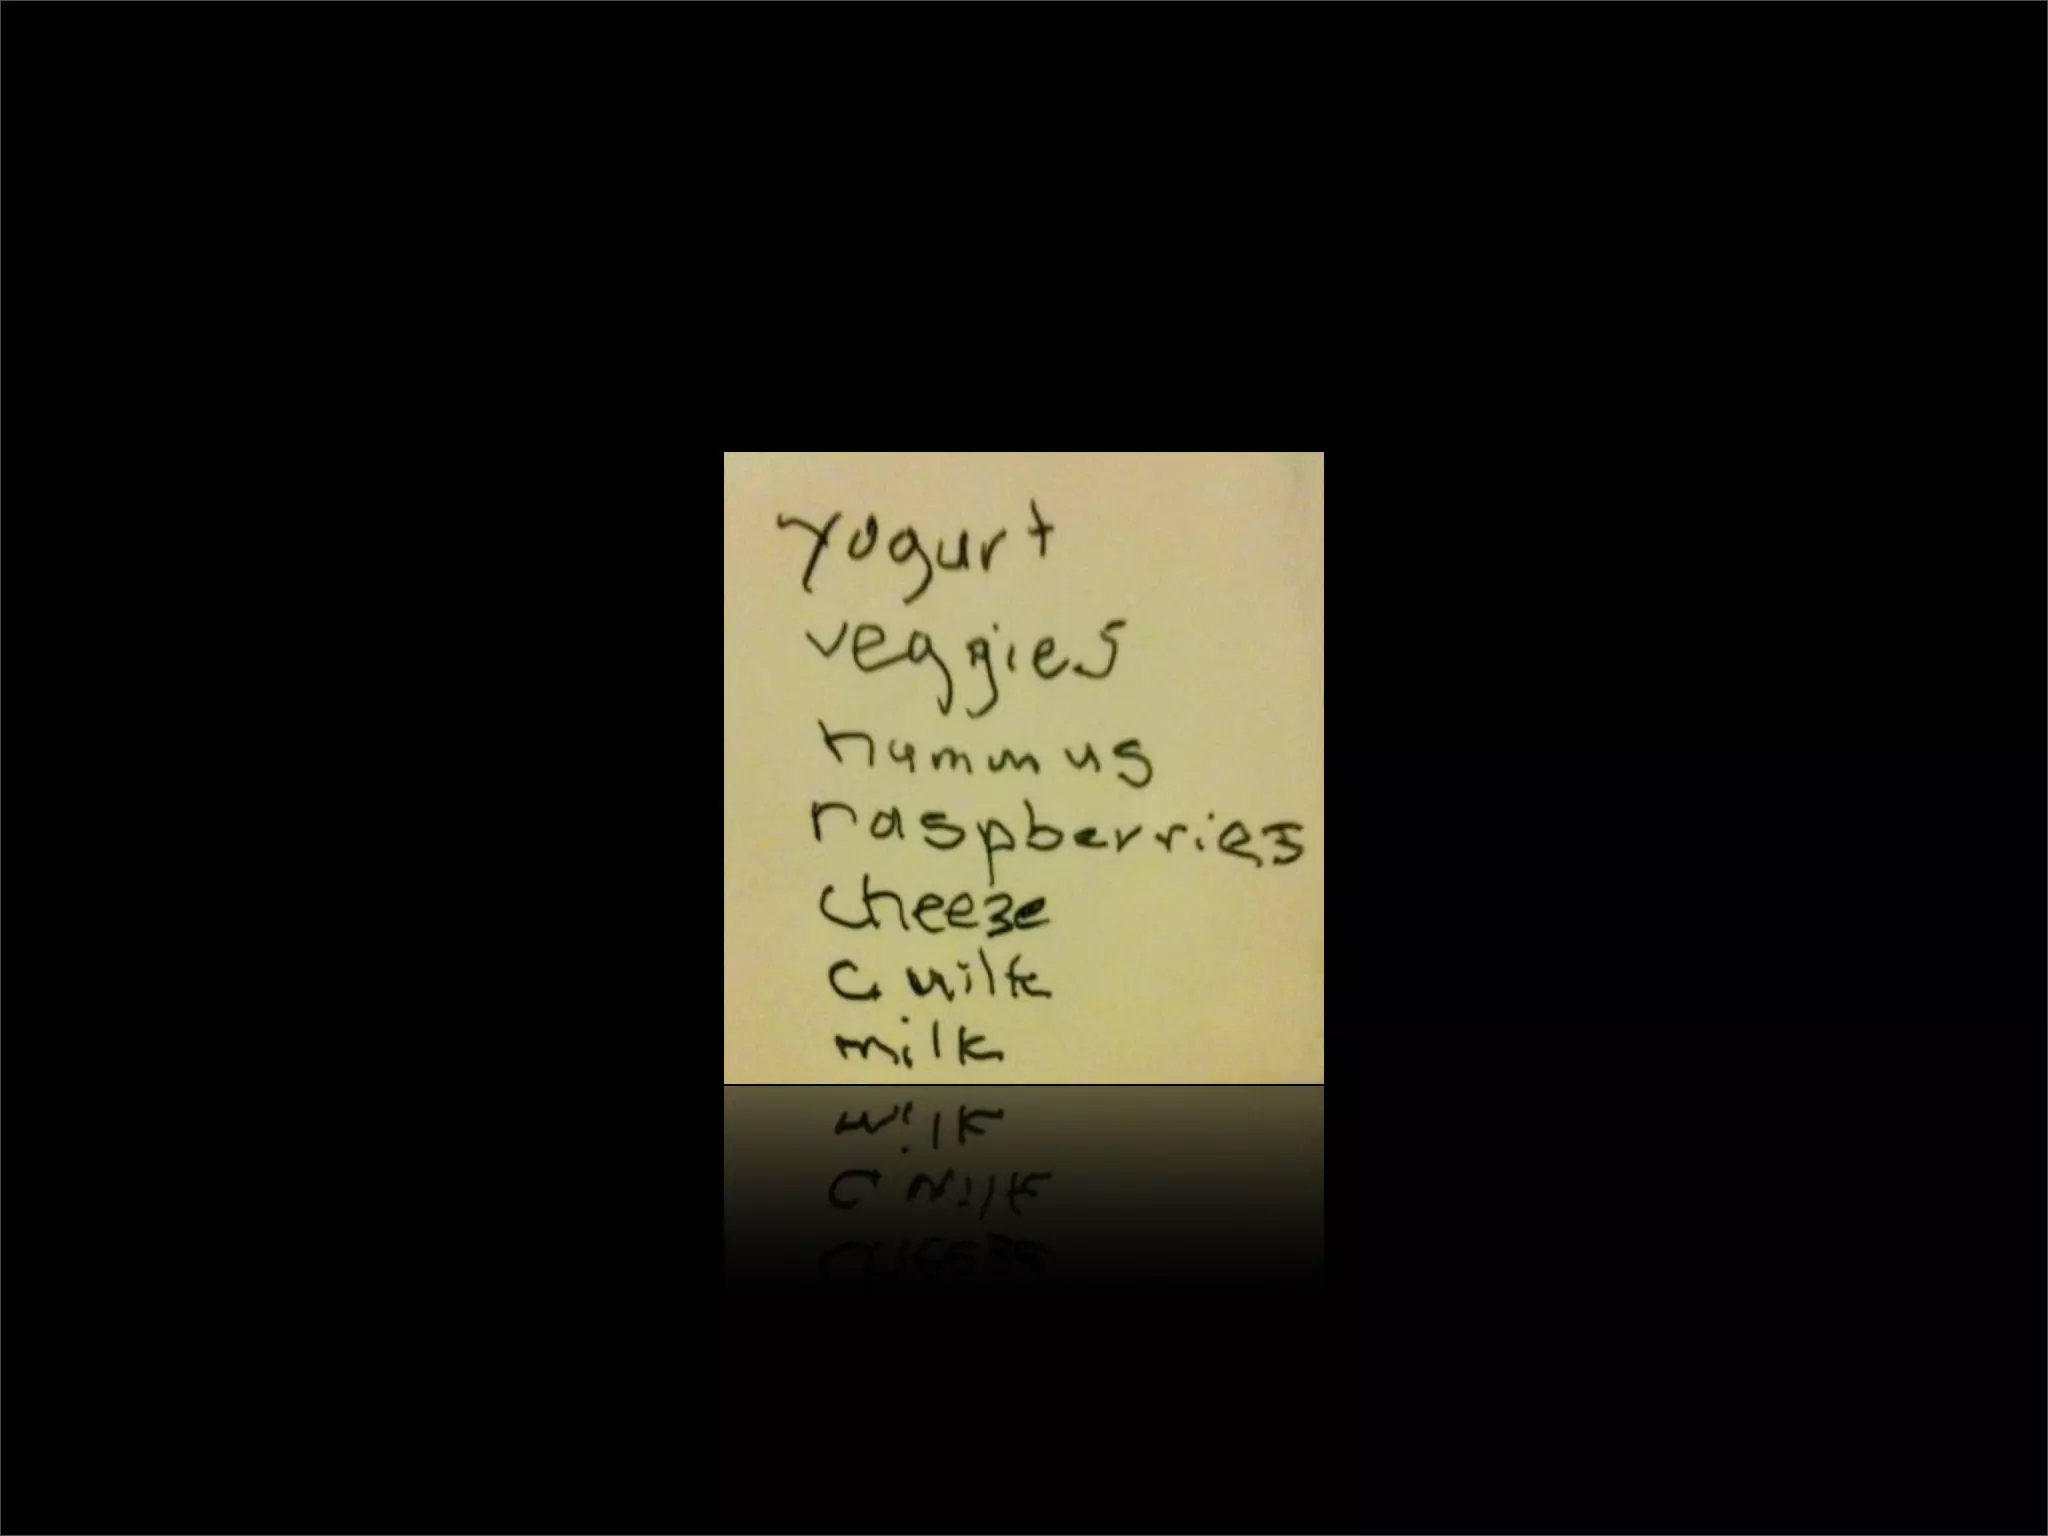 yogurt
veggies
hummus
raspberries
cheeze
c milk
milk